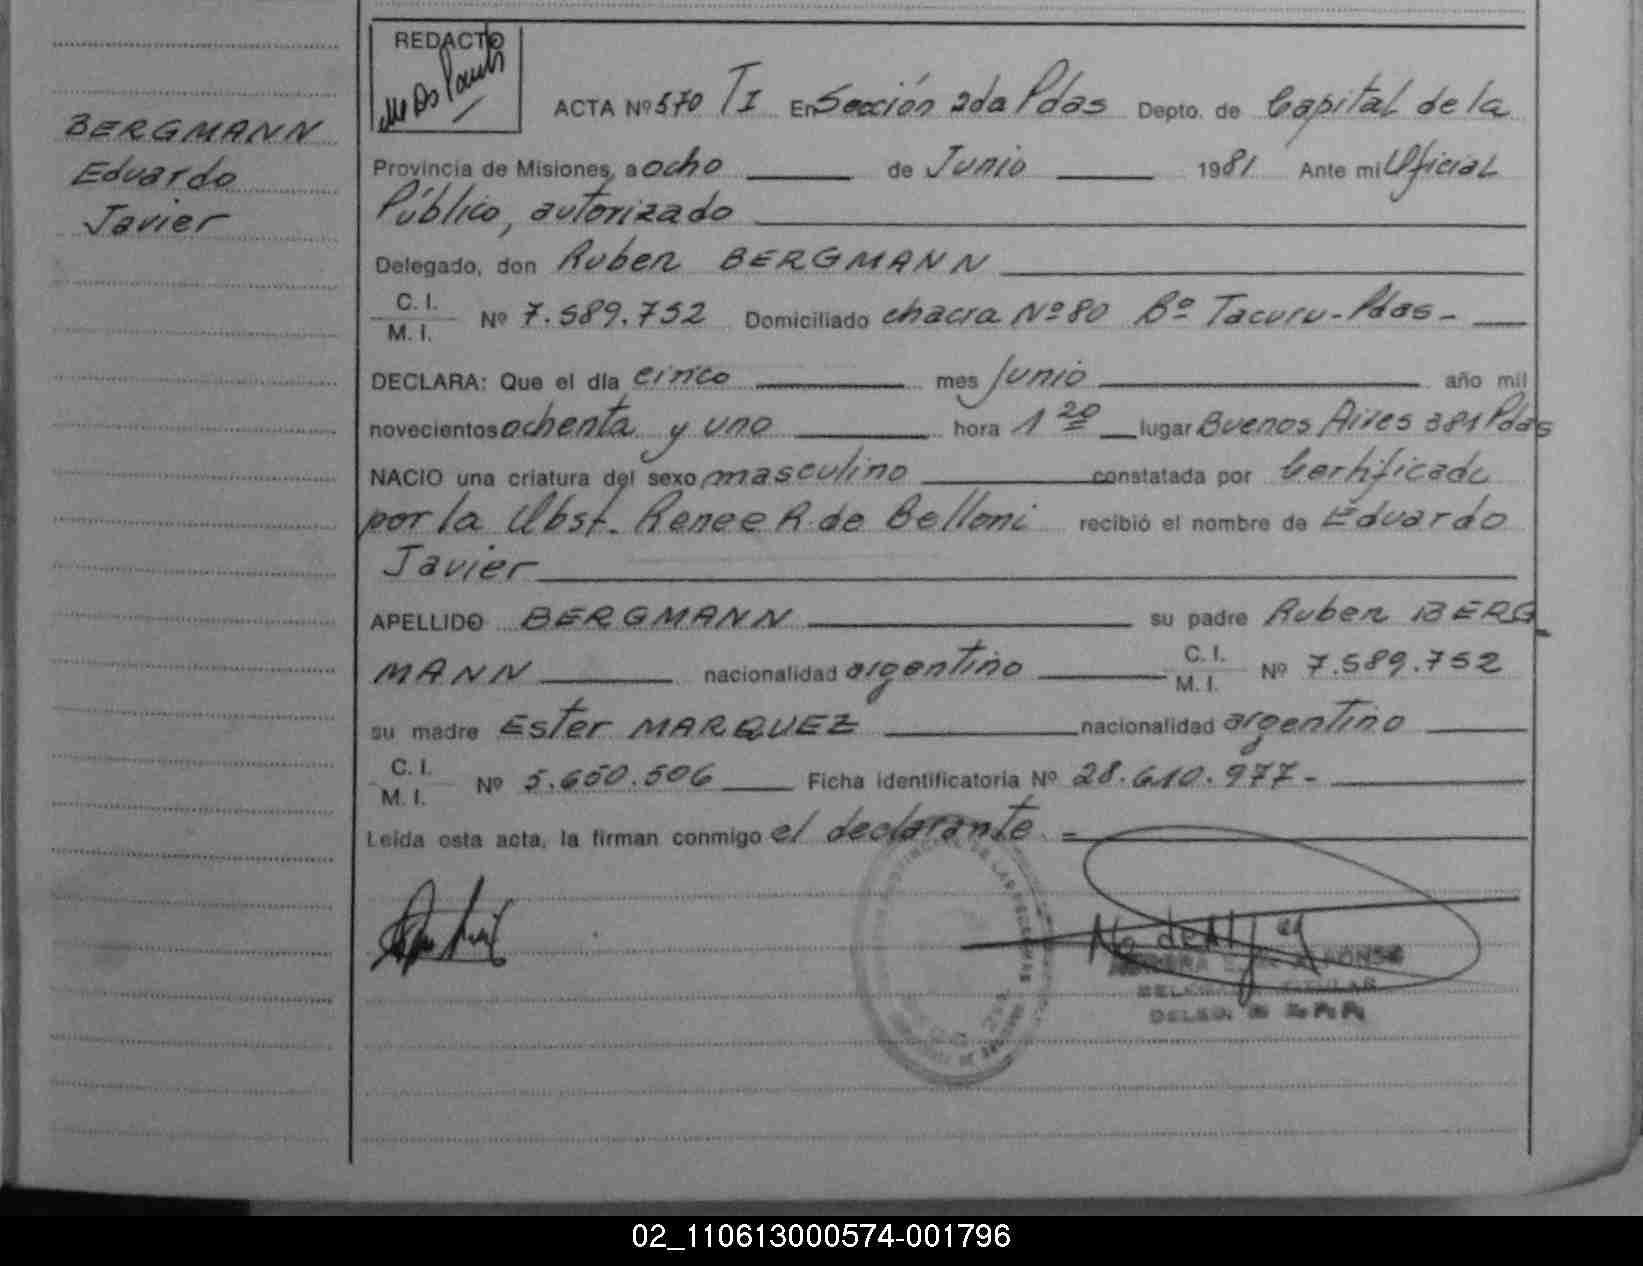 REDACTO
ACTA Nº 570 TI En Sección 2da Pdas Depto. de Capital de la
BERGMANN
Eduardo
Javier
Provincia de Misiones, a ocho de Junio 1981 Ante mi Oficial
Público, autorizado
Delegado, don Ruben BERGMANN
C. I.
M. I. Nº 7.589.752 Domiciliado chacra Nº 80 Bº Tacuru - Pdas -
DECLARA: Que el día cinco mes Junio año mil
novecientos ochenta y uno hora 1 20 lugar Buenos Aires 381 Pdas
NACIO una criatura del sexo masculino constatada por Certificado
por la Obst. Renee R. de Belloni recibió el nombre de Eduardo
Javier
APELLIDO BERGMANN su padre Ruben BERG
MANN nacionalidad argentino C. I.
M. I. Nº 7.589.752
su madre Ester MARQUEZ nacionalidad argentino
C. I.
M. I. Nº 5.650.506 Ficha identificatoria Nº 28.610.977-
Leída esta acta, la firman conmigo el declarante
02_110613000574-001796